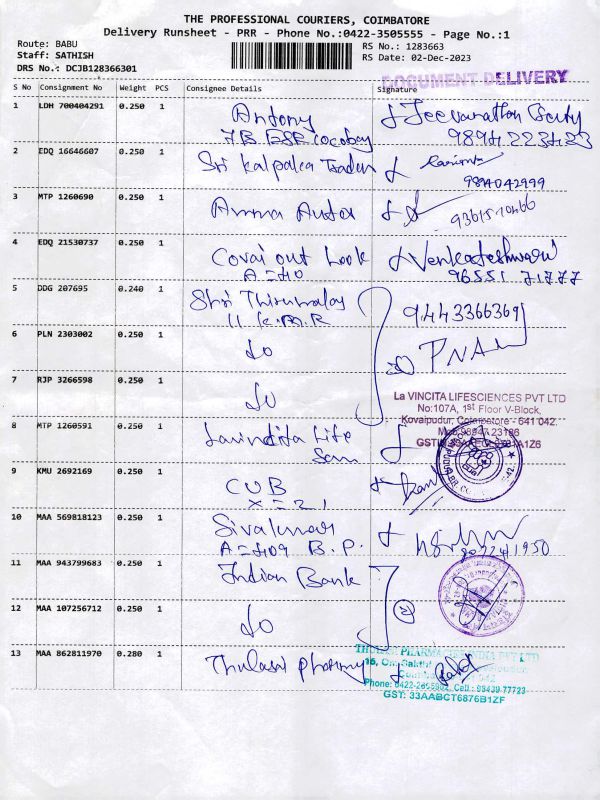 THE PROFESSIONAL COURIERS, COIMBATORE
Delivery Runsheet - PRR - Phone No.:0422-3505555 - Page No.:1
Route: BABU
Staff: SATHISH
DRS No.: DCJB128366301
RS No.: 1283663
RS Date: 02-Dec-2023
DOCUMENT DELIVERY
S No Consignment No Weight PCS Consignee Details Signature
1 LDH 700404291 0.250 1 Antony
7B BSR cocobay
9894223423
2 EDQ 16646607 0.250 1 Sri Kalpaka Traders
9894042999
3 MTP 1260690 0.250 1 Amma Autos
4 EDQ 21530737 0.250 1 Covai out Look Venkateshwari
A=40 96551 71777
5 DDG 207695 0.240 1 Shri Thirumalay 9443366369
11 K.M.R
6 PLN 2303002 0.250 1 do
7 RJP 3266598 0.250 1 do
La VINCITA LIFESCIENCES PVT LTD
No:107A, 1st Floor V-Block,
Kovaipudur, Coimbatore - 641 042.
8 MTP 1260591 0.250 1 Lavincita Life
9 KMU 2692169 0.250 1 CUB
X=21
10 MAA 569818123 0.250 1 Sivakumar
A=409 B.P.
11 MAA 943799683 0.250 1 Indian Bank
12 MAA 107256712 0.250 1 do 2
13 MAA 862811970 0.280 1 Thulasi pharmacy
THULASI PHARMACIES INDIA PVT LTD
Phone: 0422-2605902, Cell.: 98439 77723
GST: 33AABCT6876B1ZF